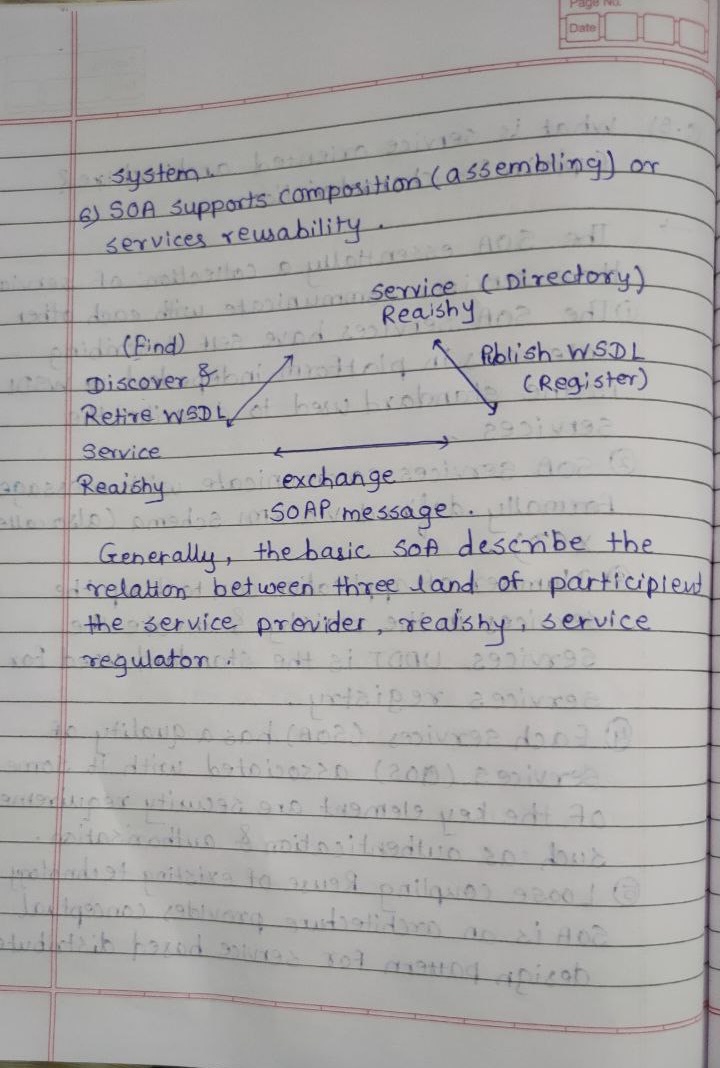 Page No.
Date
system.
6) SOA supports composition (assembling) or
services reusability.
Service (Directory)
Reaishy
(Find)
Discover &
Retire WSDL
Publish WSDL
(Register)
Service
Reaishy
exchange
SOAP message.
Generally, the basic SOA describe the
relation between three land of participient
the service provider, reaishy, service
regulaton.